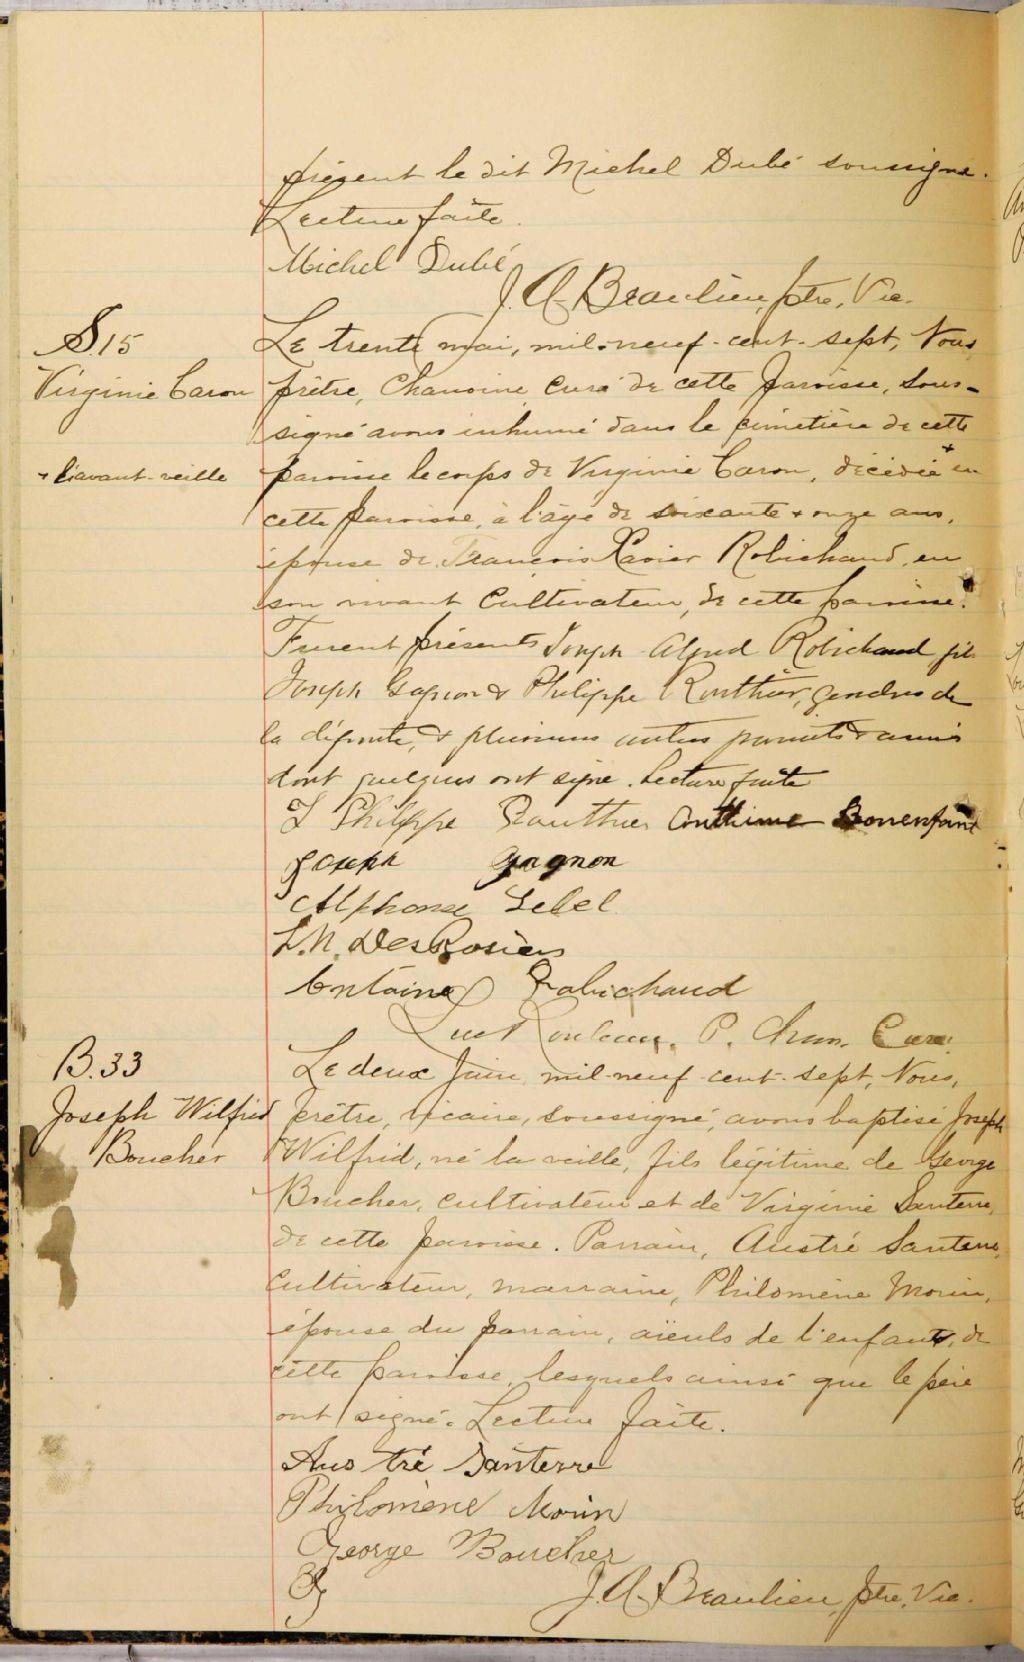 présent le dit Michel Dubé soussigné.
Lecture faite.
Michel Dubé
J. A. Beaulieu, ptre, Vic.
S. 15
Virginie Caron
+ l'avant-veille
Le trente mai, mil-neuf-cent-sept, Nous,
prêtre, Chanoine, Curé de cette paroisse, sous-
signé avons inhumé dans le cimetière de cette
paroisse le corps de Virginie Caron, décédée + en
cette paroisse, à l'âge de soixante & onze ans,
épouse de François Xavier Robichaud, en
son vivant Cultivateur, de cette paroisse.
Furent présents Joseph Alfred Robichaud fils
Joseph Gagnon & Philippe Routhier, gendres de
la défunte, & plusieurs autres parents & amis
dont quelques ont signé. Lecture faite
J Philippe Routhier Anthime Bonenfant
Joseph Gagnon
Alphonse Lebel
L. N. DesRosiers
Antoine Robichaud
Luc Rouleau. P. Chan. Curé.
B. 33
Joseph Wilfrid
Boucher
Le deux Juin mil-neuf-cent-sept, Nous,
prêtre, vicaire, soussigné, avons baptisé Joseph
Wilfrid, né la veille, fils légitime de George
Boucher, cultivateur et de Virginie Santerre,
de cette paroisse. Parrain, Austré Santerre,
cultivateur, marraine, Philomène Morin,
épouse du parrain, aïeuls de l'enfant, de
cette paroisse, lesquels ainsi que le père
ont signé. Lecture faite.
Austré Santerre
Philomène Morin
George Boucher
J. A. Beaulieu, ptre, Vic.